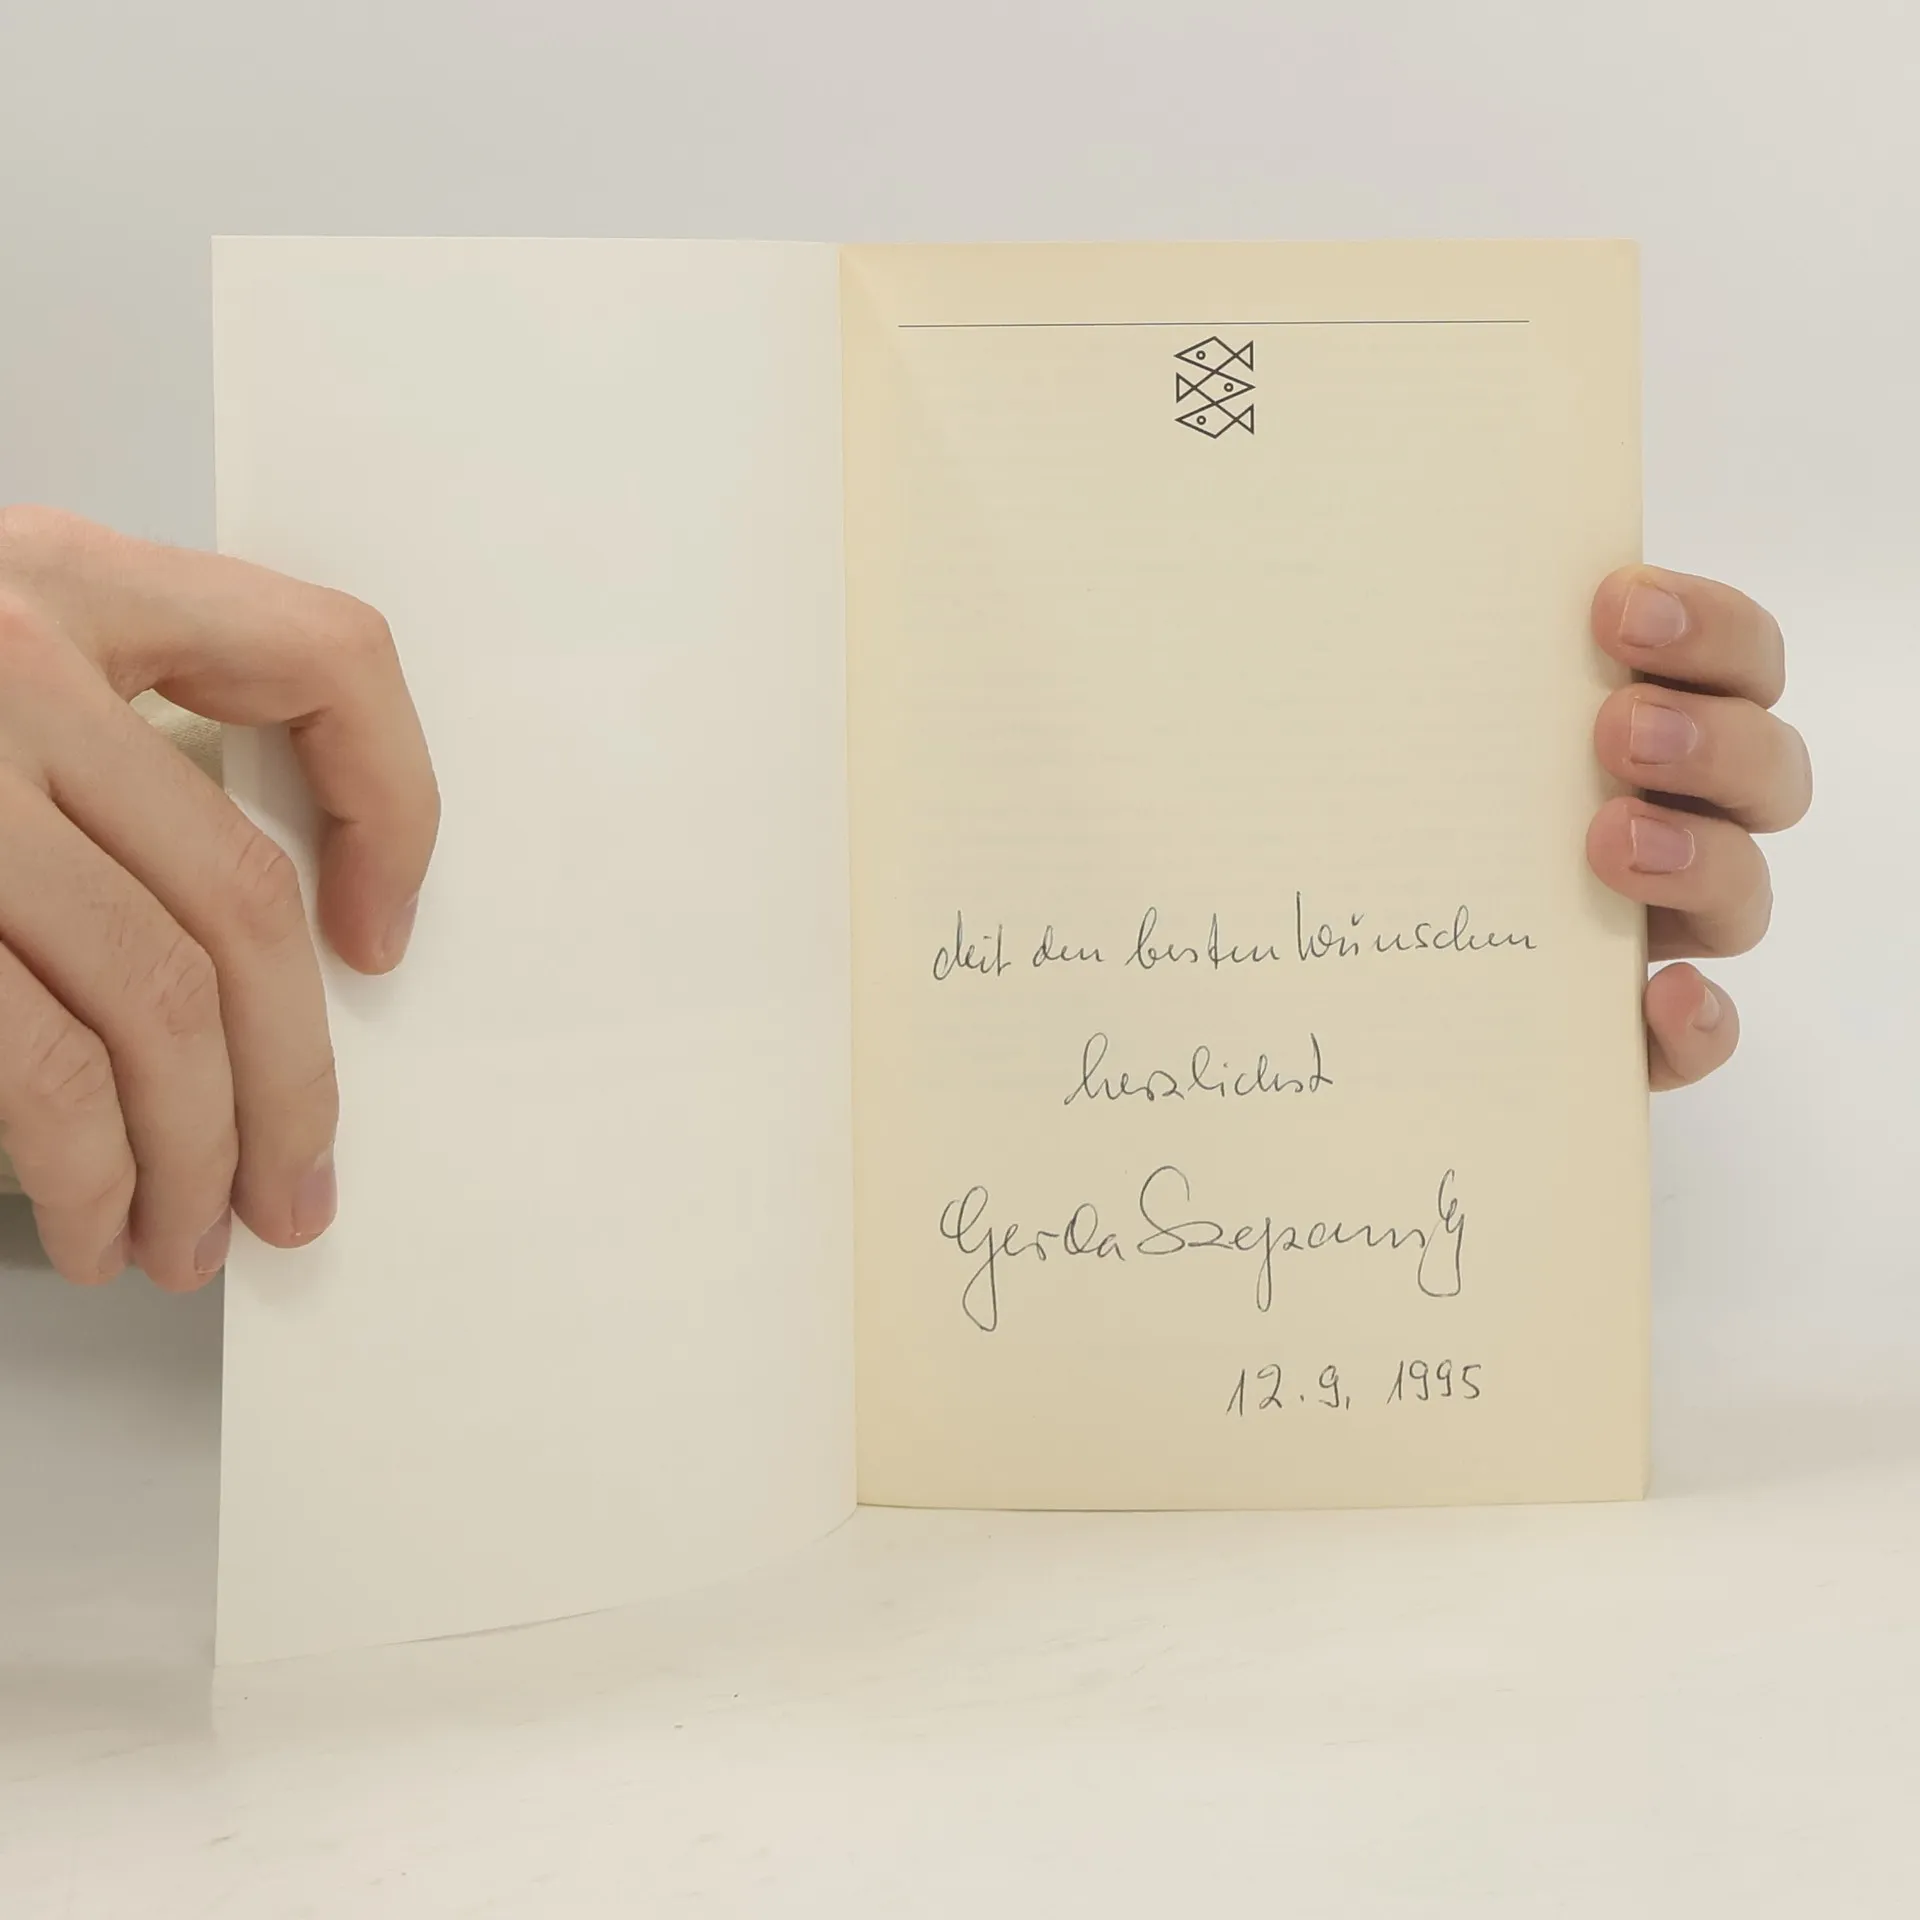 Mit den besten Wünschen
herzlichst
Gerda Szepansky
12.9.1995